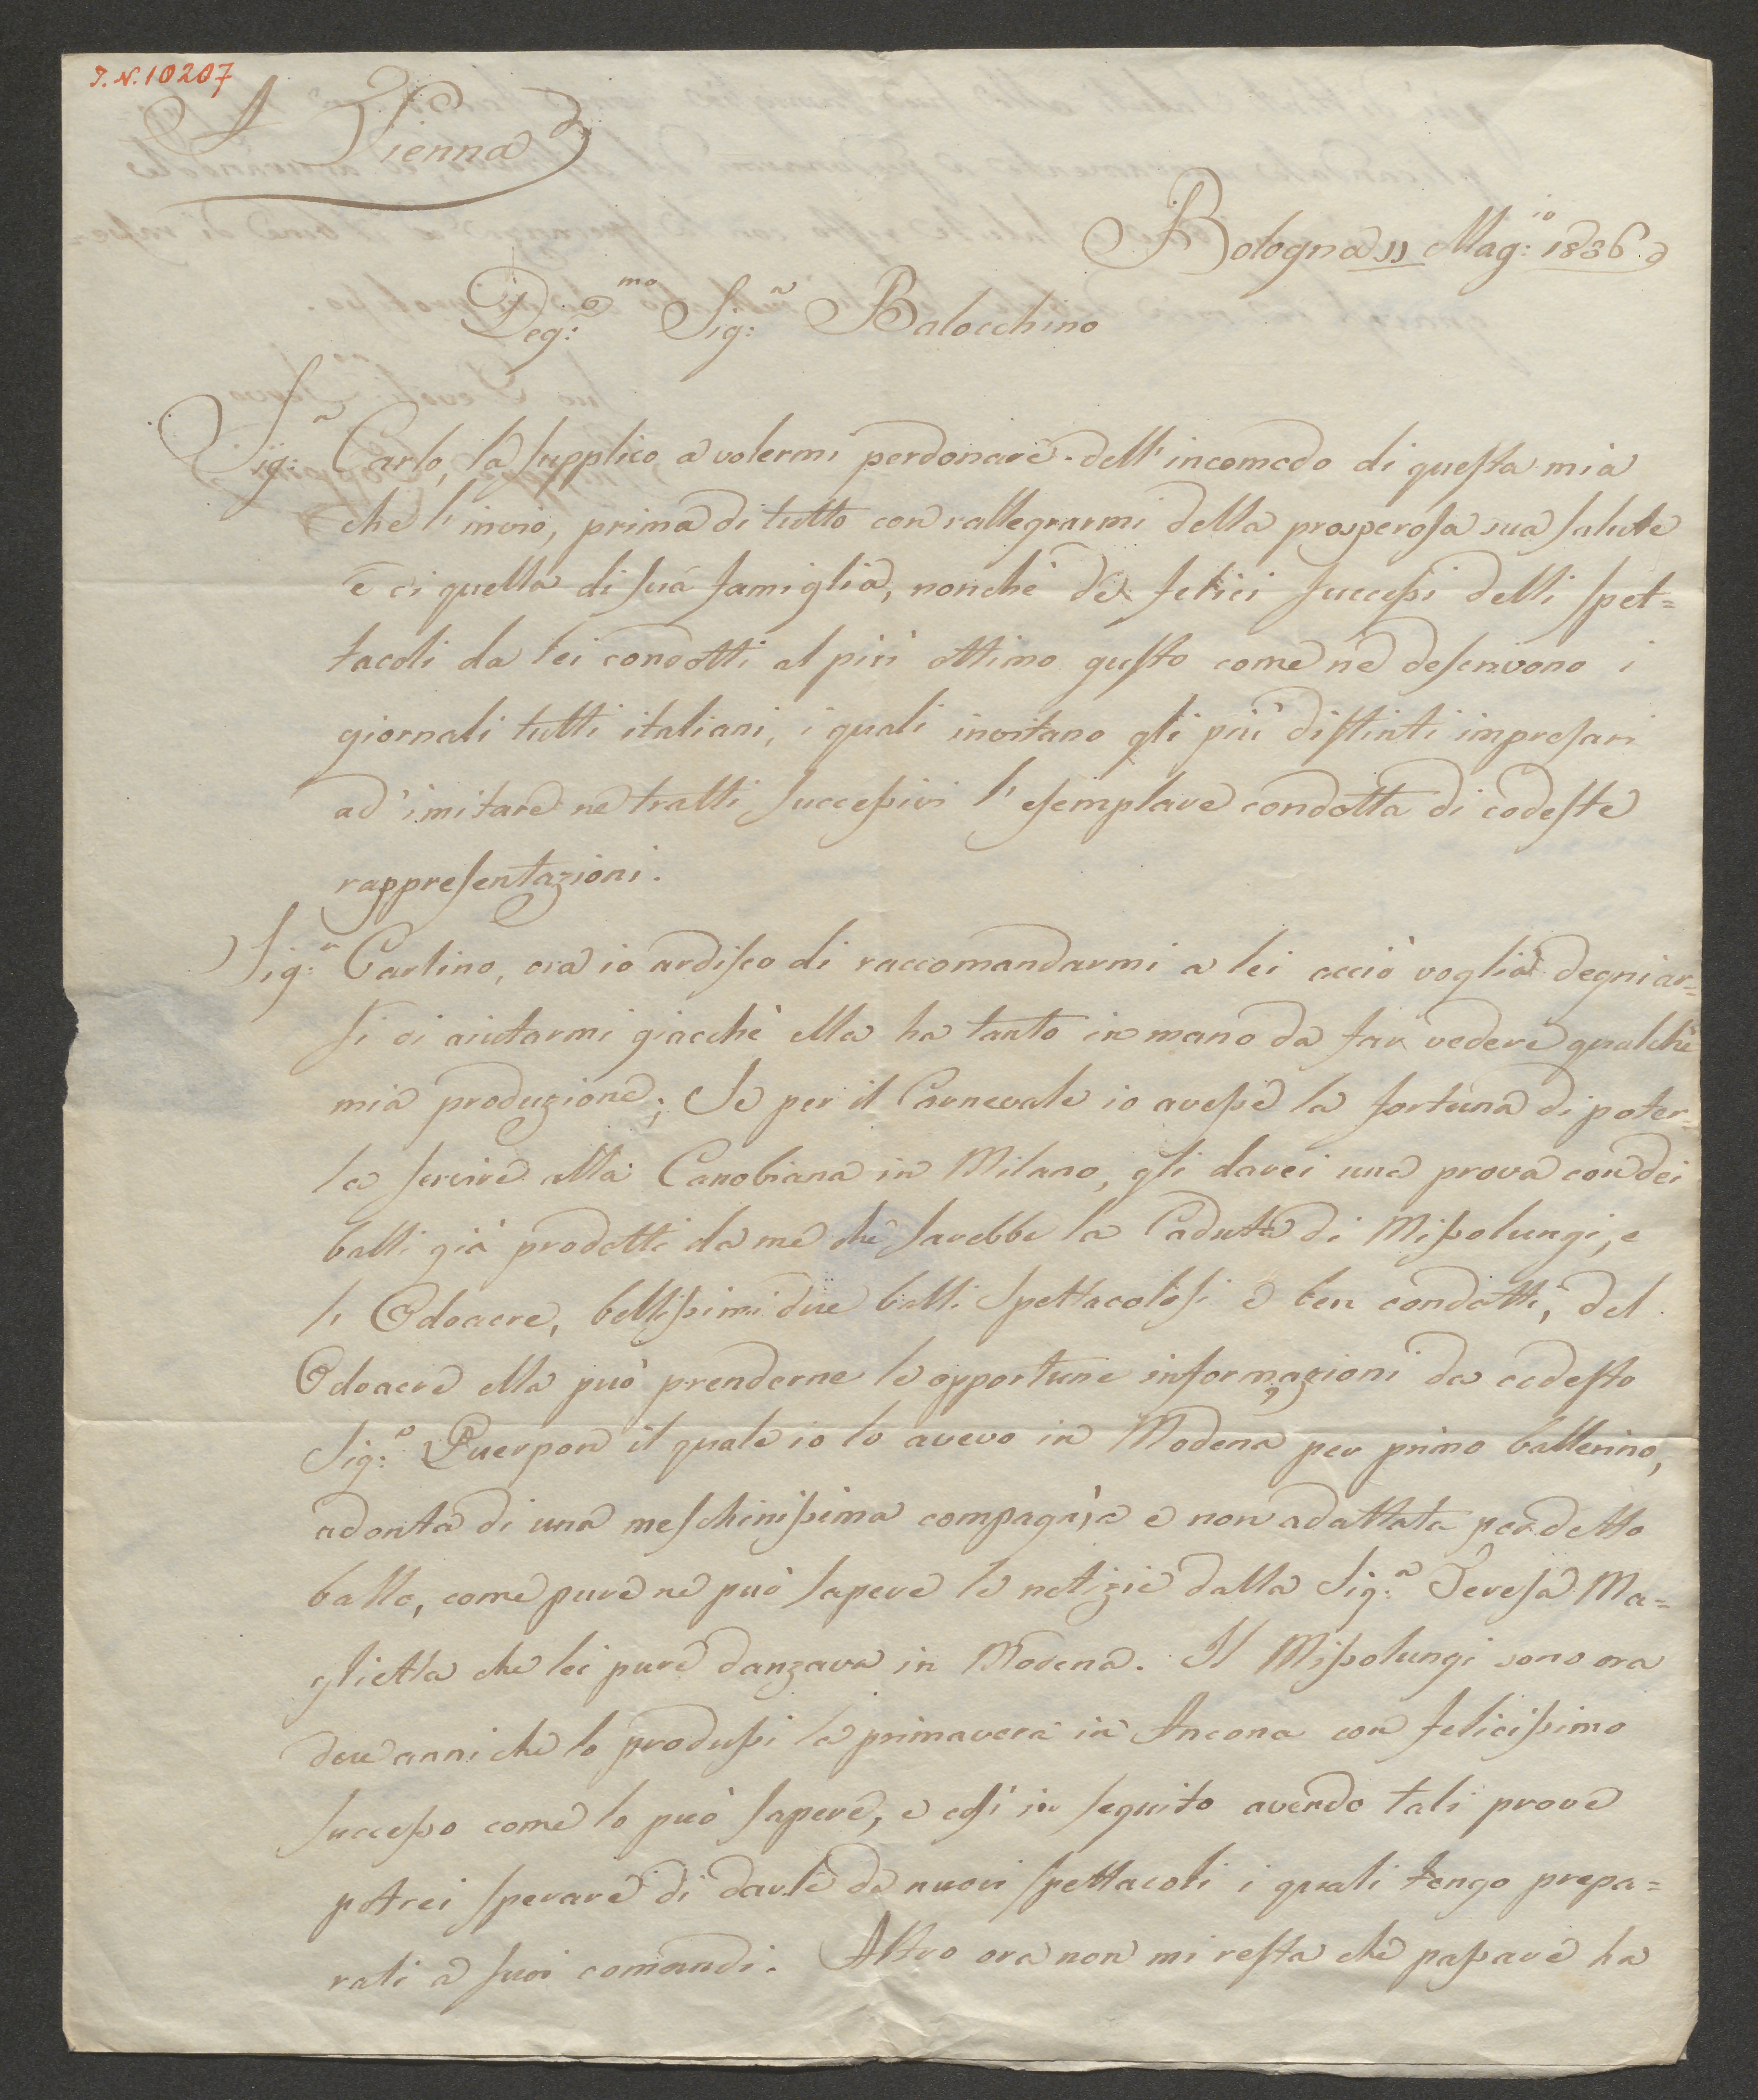 I. N. 10207
A Vienna
Bologna 11 Mag:io 1836
Deg:mo Sig:r Balocchino
Sig:r Carlo, la supplico a volermi perdonare dell'incomodo di questa mia
che l'invio, prima di tutto con rallegrarmi della prosperosa sua salute
e di quella di sua famiglia, nonchè de felici successi delli spet=
tacoli da lei condotti al più ottimo gusto come ne descrivono i
giornali tutti italiani, i quali invitano gli più distinti impresari
ad imitare ne tratti successivi l'esemplare condotta di codeste
rappresentazioni.
Sig:r Carlino, ora io ardisco di raccomandarmi a lei acciò voglia degniar=
si di aiutarmi giacchè ella ha tanto in mano da far vedere qualche
mia produzione; Se per il Carnevale io avesse la fortuna di poter=
la servire alla Canobiana in Milano, gli darei una prova con dei
balli già prodotti da me che sarebbe la Caduta di Missolungi, e
l'Odoacre, bellissimi due balli spettacolosi e ben condotti, del
Odoacre ella può prenderne le opportune informazioni da codesto
Sig:r Puerpon il quale io lo avevo in Modena per primo ballerino,
adonta di una meschinissima compagnia e non adattata per detto
ballo, come pure ne può sapere le notizie dalla Sig:a Teresa Ma=
glietta che lei pure danzava in Modena. Il Missolungi sono ora
due anni che lo produssi la primavera in Ancona con felicissimo
successo come lo può sapere, e così in seguito avendo tali prove
potrei sperare di darle de nuovi spettacoli i quali tengo prepa=
rati a suoi comandi. Altro ora non mi resta che passare ha